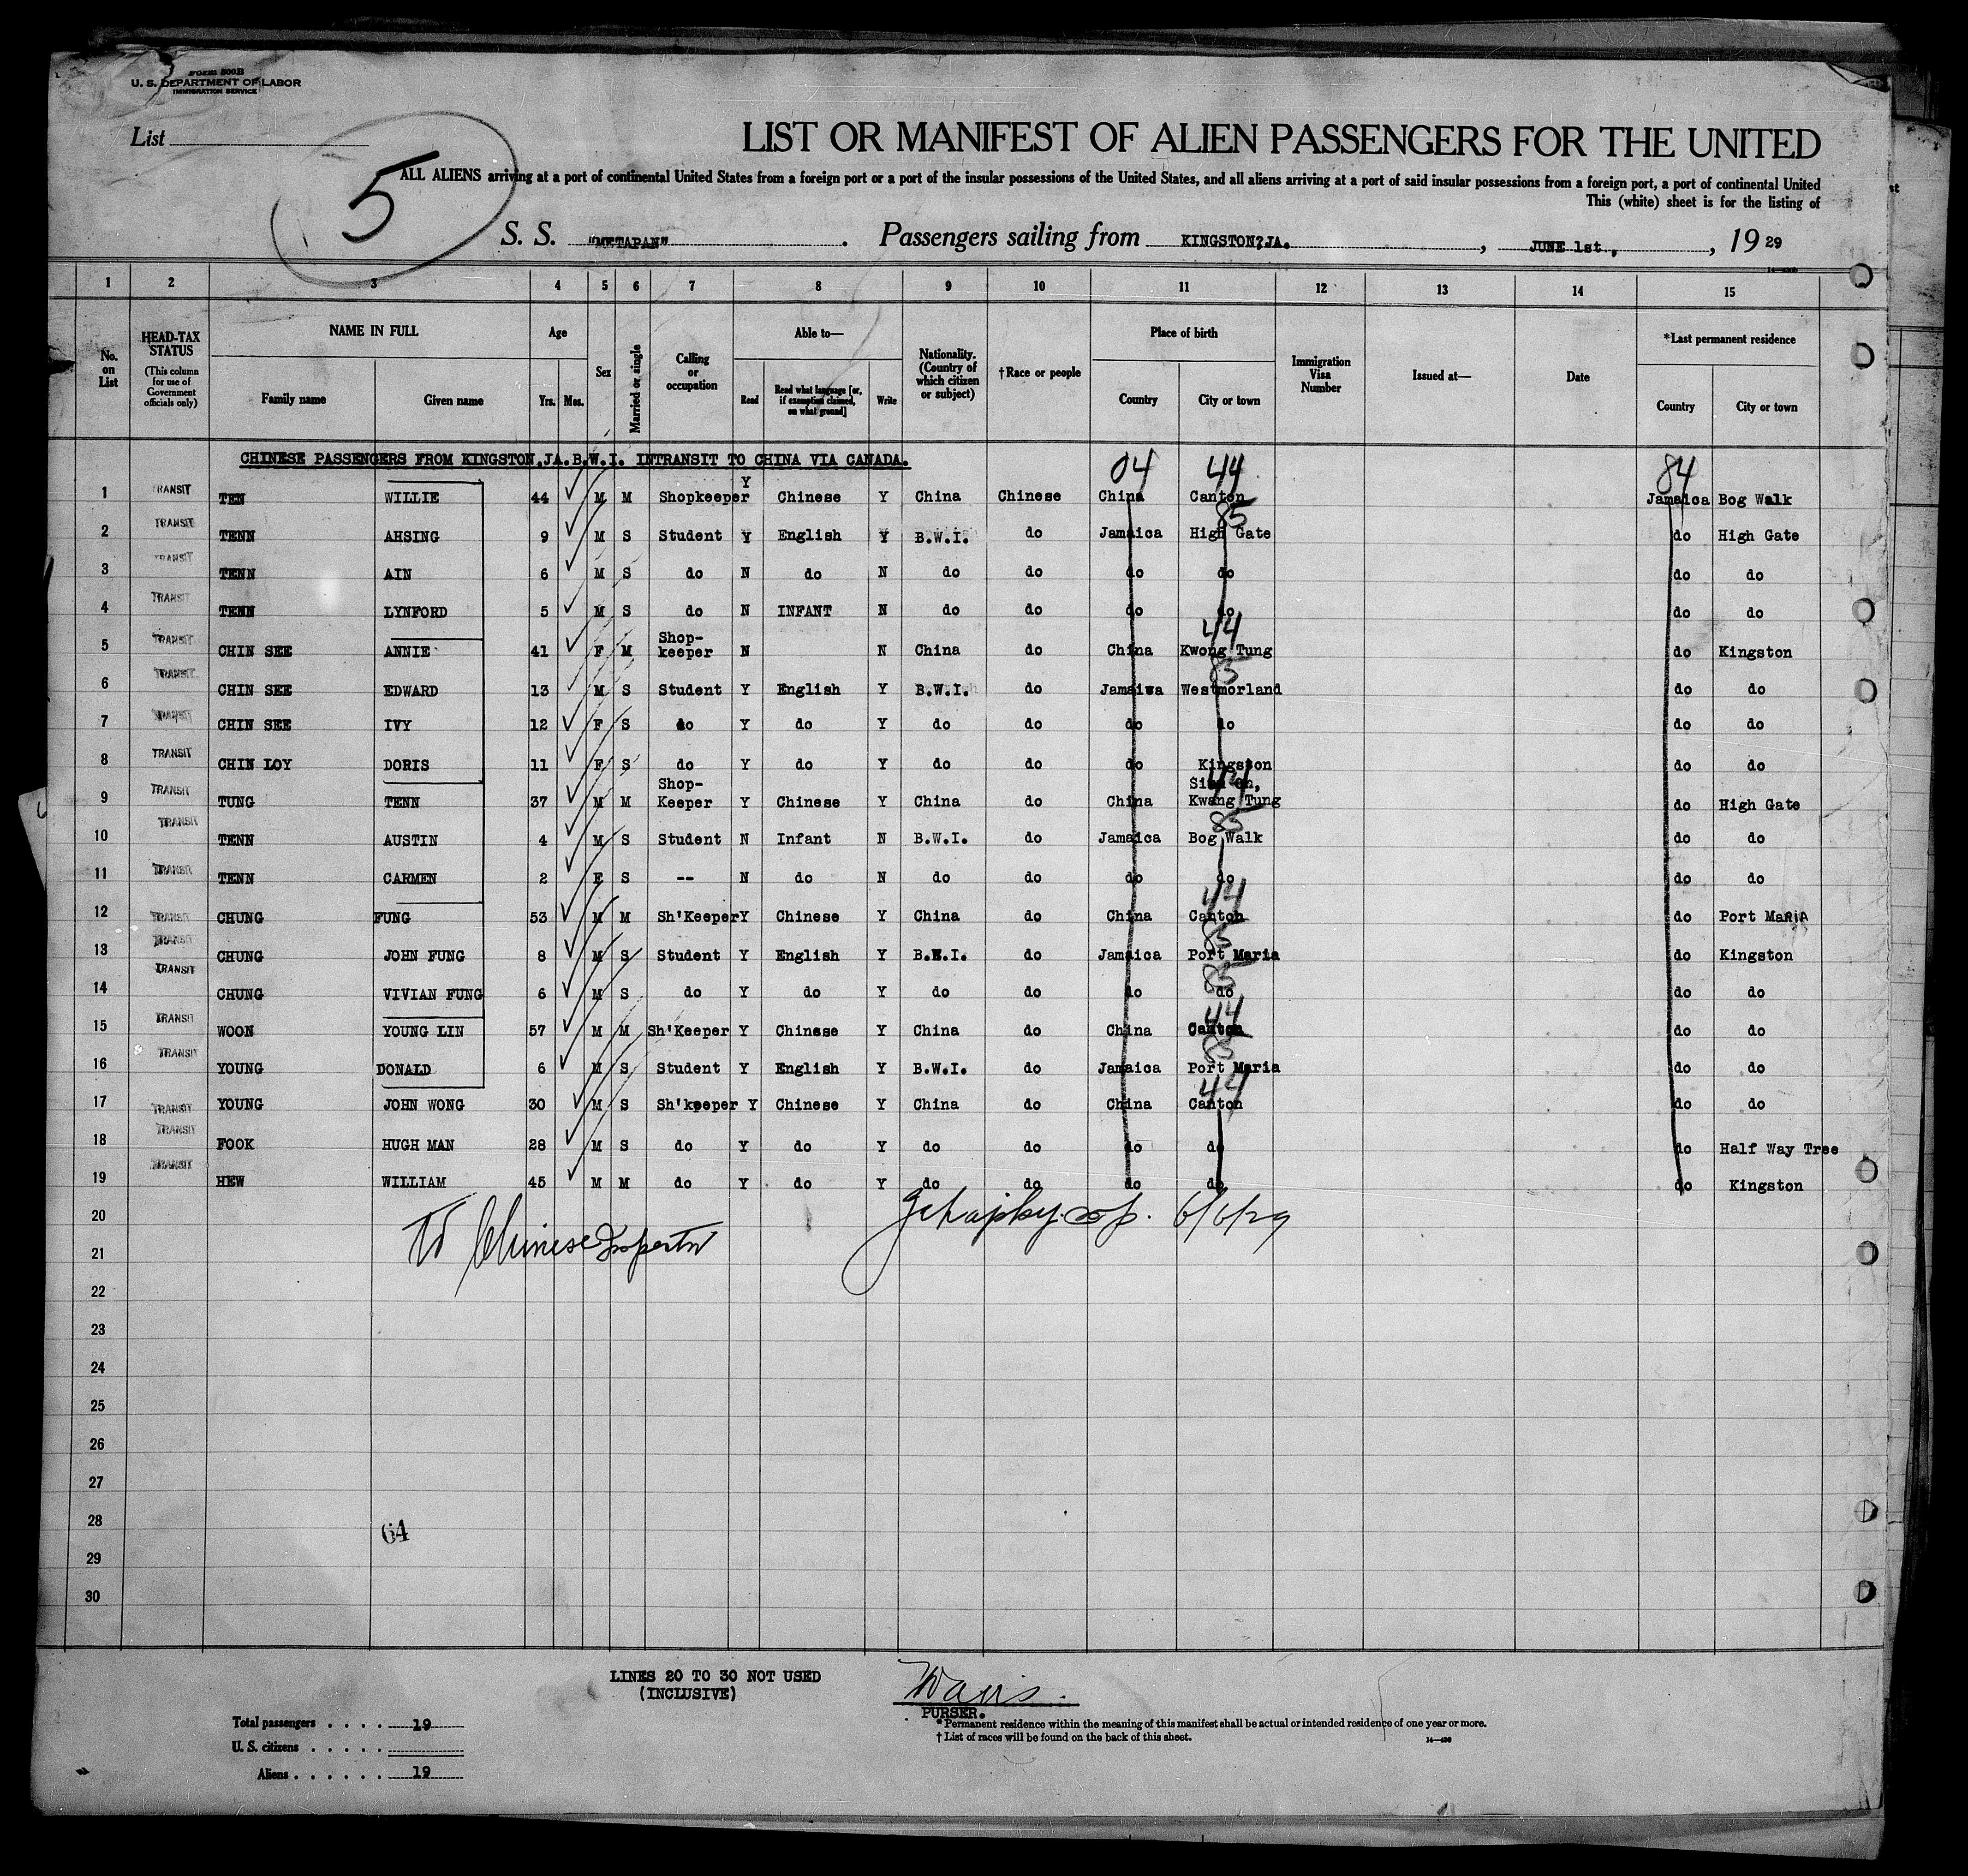 Form 500B
U. S. DEPARTMENT OF LABOR
IMMIGRATION SERVICE
List
5
LIST OR MANIFEST OF ALIEN PASSENGERS FOR THE UNITED
ALL ALIENS arriving at a port of continental United States from a foreign port or a port of the insular possessions of the United States, and all aliens arriving at a port of said insular possessions from a foreign port, a port of continental United
This (white) sheet is for the listing of
S. S. "METAPAN". Passengers sailing from KINGSTON?JA. , JUNE 1st, , 19 29
1 2 3 4 5 6 7 8 9 10 11 12 13 14 15
No. on List HEAD-TAX STATUS (This column for use of Government officials only) NAME IN FULL Family name Given name Age Yrs. Mos. Sex Married or single Calling or occupation Able to— Read Read what language [or, if exemption claimed, on what ground] Write Nationality. (Country of which citizen or subject) †Race or people Place of birth Country City or town Immigration Visa Number Issued at— Date *Last permanent residence Country City or town
CHINESE PASSENGERS FROM KINGSTON,JA.B.W.I. INTRANSIT TO CHINA VIA CANADA.
04 44 84
1 TRANSIT TEN WILLIE 44 M M Shopkeeper Y Chinese Y China Chinese China Canton Jamaica Bog Walk
85
2 TRANSIT TENN AHSING 9 M S Student Y English Y B.W.I. do Jamaica High Gate do High Gate
3 TRANSIT TENN AIN 6 M S do N do N do do do do do do
4 TRANSIT TENN LYNFORD 5 M S do N INFANT N do do do do do do
44
5 TRANSIT CHIN SEE ANNIE 41 F M Shop-keeper N N China do China Kwong Tung do Kingston
85
6 TRANSIT CHIN SEE EDWARD 13 M S Student Y English Y B.W.I. do Jamaiwa Westmorland do do
7 TRANSIT CHIN SEE IVY 12 F S do Y do Y do do do do do do
8 TRANSIT CHIN LOY DORIS 11 F S do Y do Y do do do Kingston do do
44
9 TRANSIT TUNG TENN 37 M M Shop-Keeper Y Chinese Y China do China Kwang Tung do High Gate
85
10 TRANSIT TENN AUSTIN 4 M S Student N Infant N B.W.I. do Jamaica Bog Walk do do
11 TRANSIT TENN CARMEN 2 F S -- N do N do do do do do do
44
12 TRANSIT CHUNG FUNG 53 M M Sh'Keeper Y Chinese Y China do China Canton do Port Maria
85
13 TRANSIT CHUNG JOHN FUNG 8 M S Student Y English Y B.W.I. do Jamaica Port Maria do Kingston
85
14 TRANSIT CHUNG VIVIAN FUNG 6 M S do Y do Y do do do do do do
44
15 TRANSIT WOON YOUNG LIN 57 M M Sh'Keeper Y Chinese Y China do China Canton do do
85
16 TRANSIT YOUNG DONALD 6 M S Student Y English Y B.W.I. do Jamaica Port Maria do do
44
17 TRANSIT YOUNG JOHN WONG 30 M S Sh'keeper Y Chinese Y China do China Canton do do
18 TRANSIT FOOK HUGH MAN 28 M S do Y do Y do do do do do Half Way Tree
19 TRANSIT HEW WILLIAM 45 M M do Y do Y do do do do do Kingston
20
To Chinese Inspector 6/6/29
21
22
23
24
25
26
27
28
64
29
30
LINES 20 TO 30 NOT USED
(INCLUSIVE)
PURSER.
Total passengers . . . . 19
U. S. citizens . . . . .
Aliens . . . . . . 19
*Permanent residence within the meaning of this manifest shall be actual or intended residence of one year or more.
† List of races will be found on the back of this sheet.